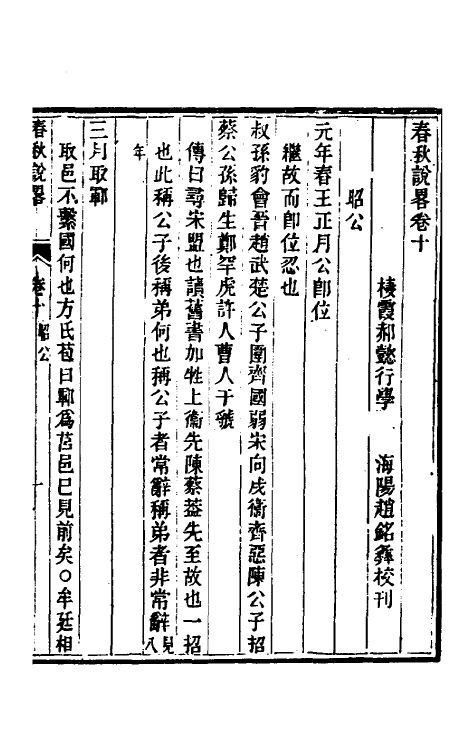 春秋說畧卷十
棲霞郝懿行學　海陽趙銘彝校刊
昭公
元年春王正月公卽位
繼故而卽位忍也
叔孫豹會晉趙武楚公子圍齊國弱宋向戌衞齊惡陳公子招
蔡公孫歸生鄭罕虎許人曹人于虢
傳曰尋宋盟也讀舊書加牲上衞先陳蔡葢先至故也一招
也此稱公子後稱弟何也稱公子者常辭稱弟者非常辭見八
年
三月取鄆
取邑不繫國何也方氏苞曰鄆爲莒邑已見前矣○牟廷相
春秋說畧　卷十　昭公　一